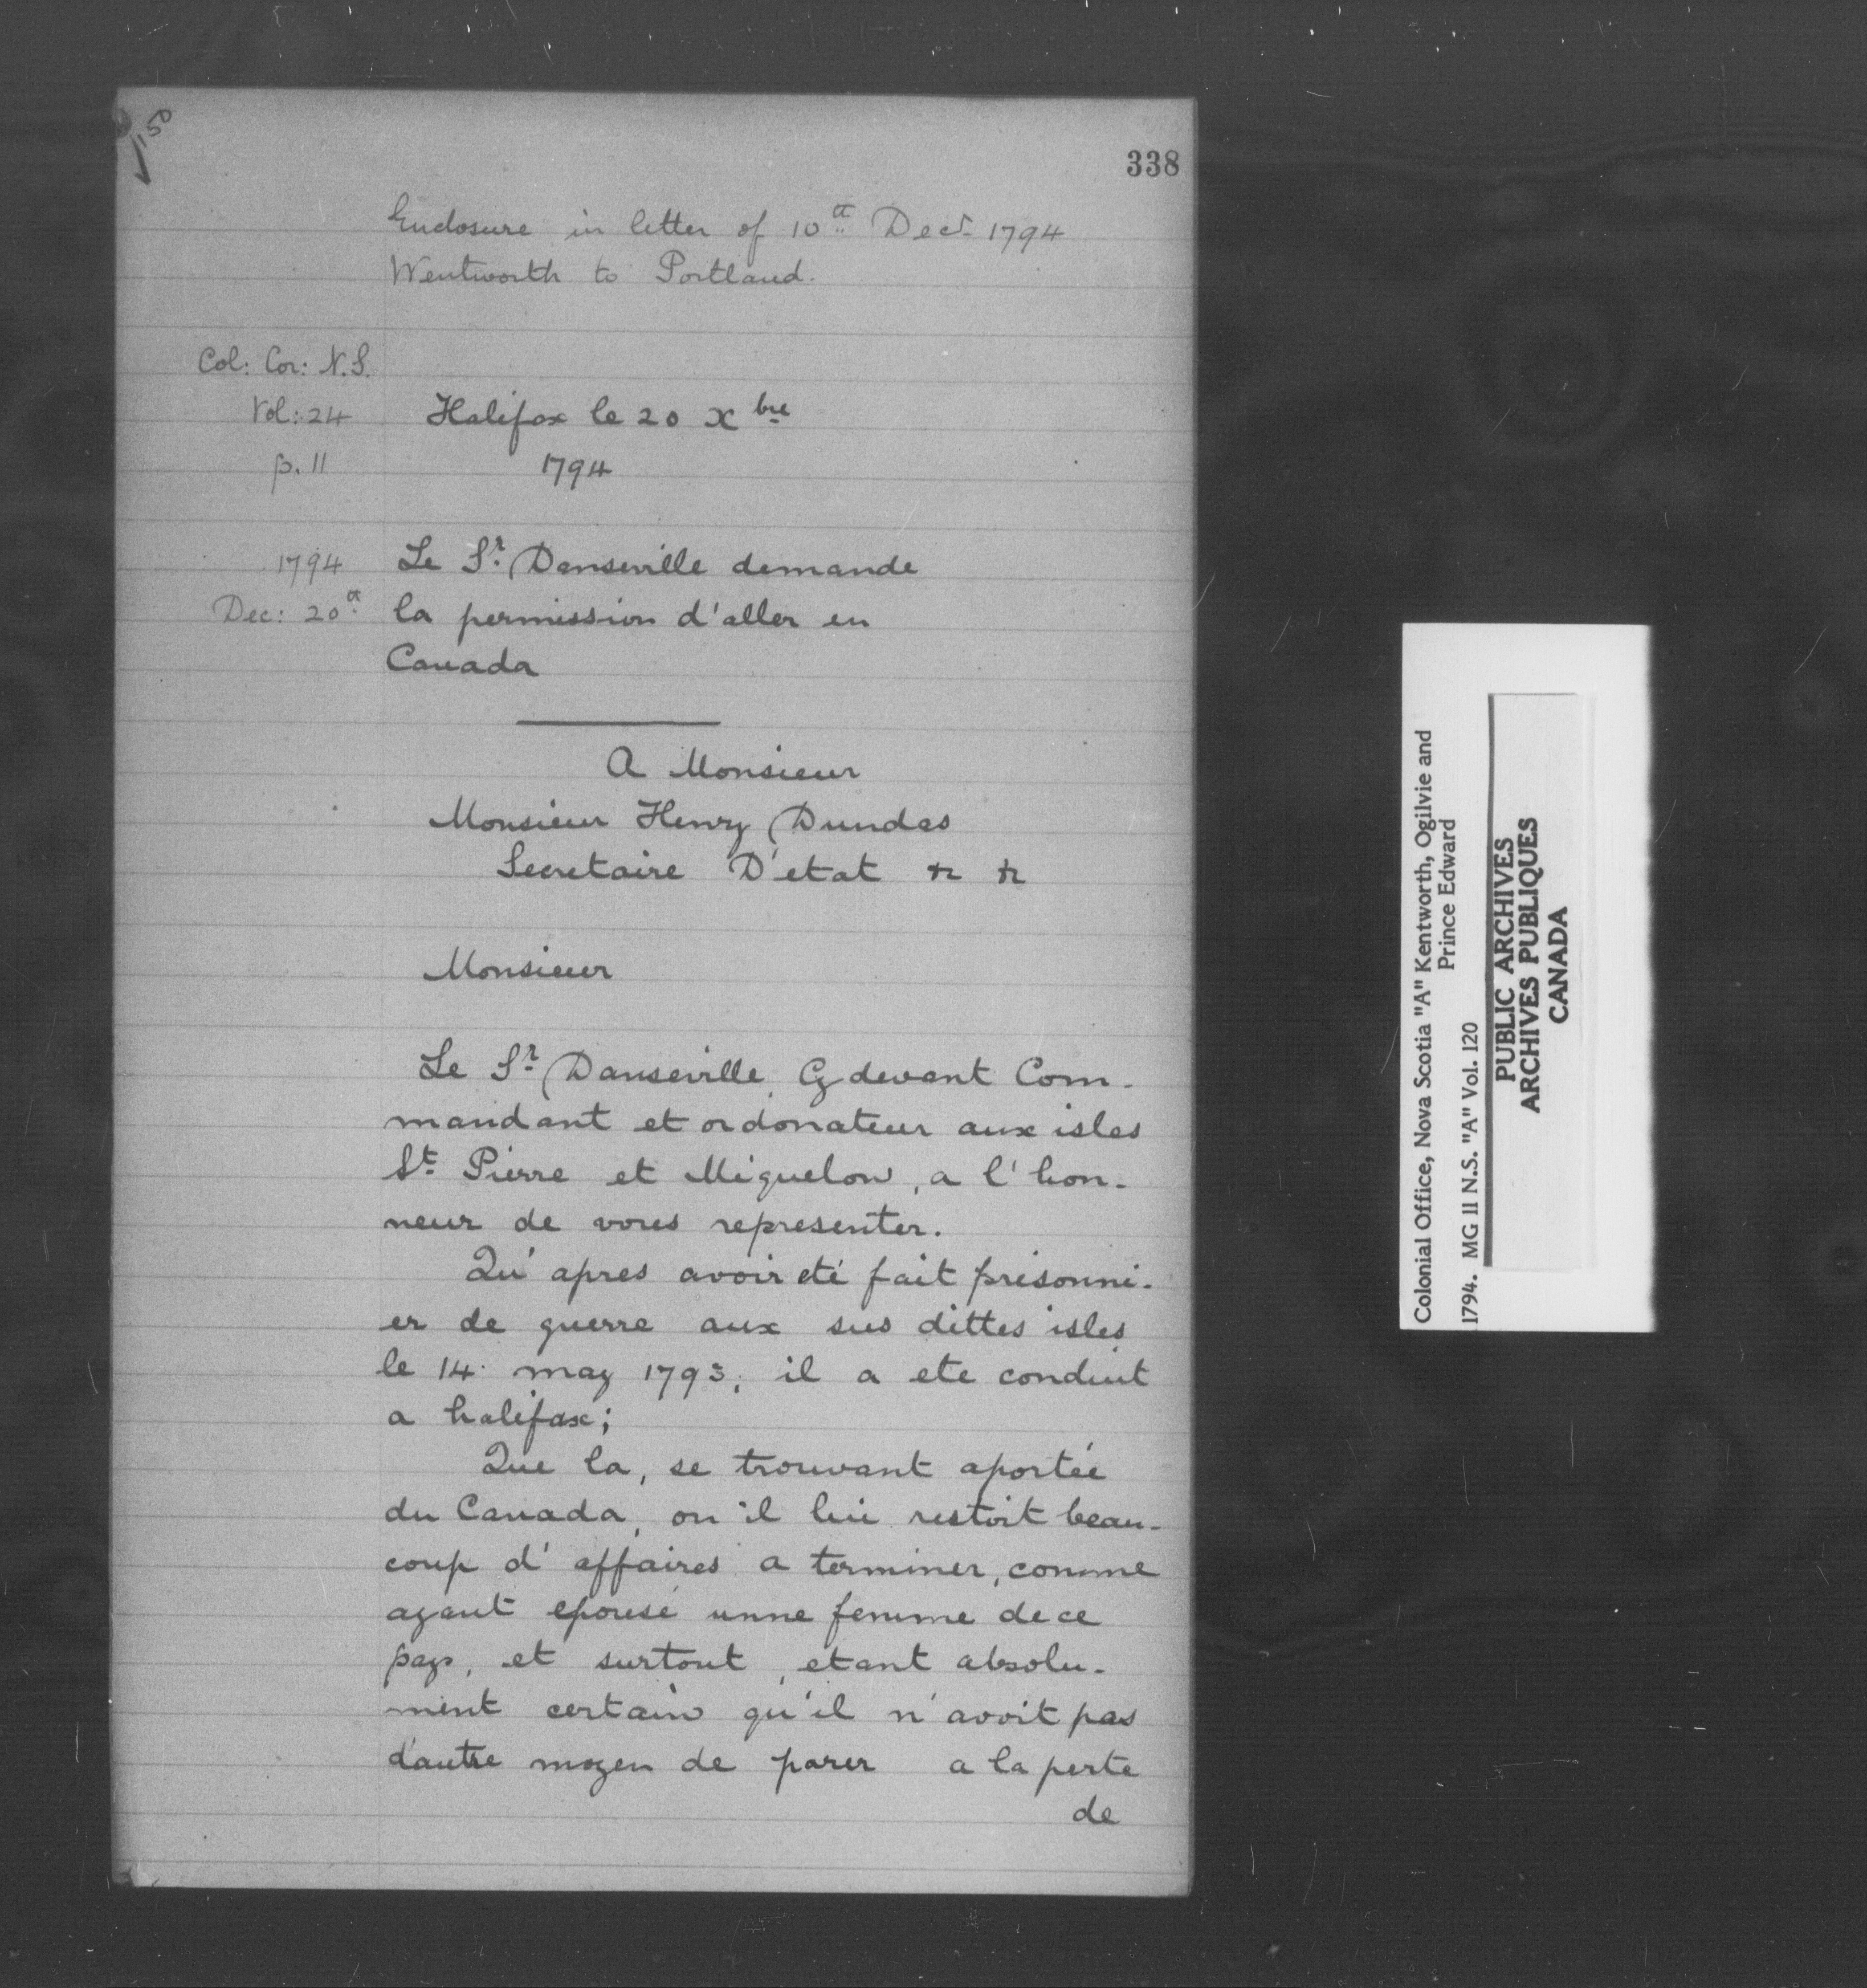 150
338
Enclosure in letter of 10th Decr 1794
Wentworth to Portland.
Col: Cor: N.S.
Vol: 24
p. 11
Halifax le 20 Xbre
1794
1794
Dec: 20th
Le Sr. Danseville demande
la permission d'aller en
Canada
A Monsieur
Monsieur Henry Dundas
Secretaire D'etat & &
Monsieur
Le Sr. Danseville Cy devant Com-
mandant et ordonateur aux isles
St. Pierre et Miquelon, a l'hon-
neur de vous representer.
Qu'apres avoir eté fait prisonni-
er de guerre aux sus dittes isles
le 14 may 1793, il a ete conduit
a halifax;
Que la, se trouvant aportée
du Canada, ou il lui restoit beau-
coup d'affaires a terminer, comme
ayant epousé unne femme de ce
pays, et surtout, etant absolu-
ment certain qu'il n'avoit pas
d'autre moyen de parer a la perte
de
Colonial Office, Nova Scotia "A" Kentworth, Ogilvie and
Prince Edward
1794. MG 11 N.S. "A" Vol. 120
PUBLIC ARCHIVES
ARCHIVES PUBLIQUES
CANADA